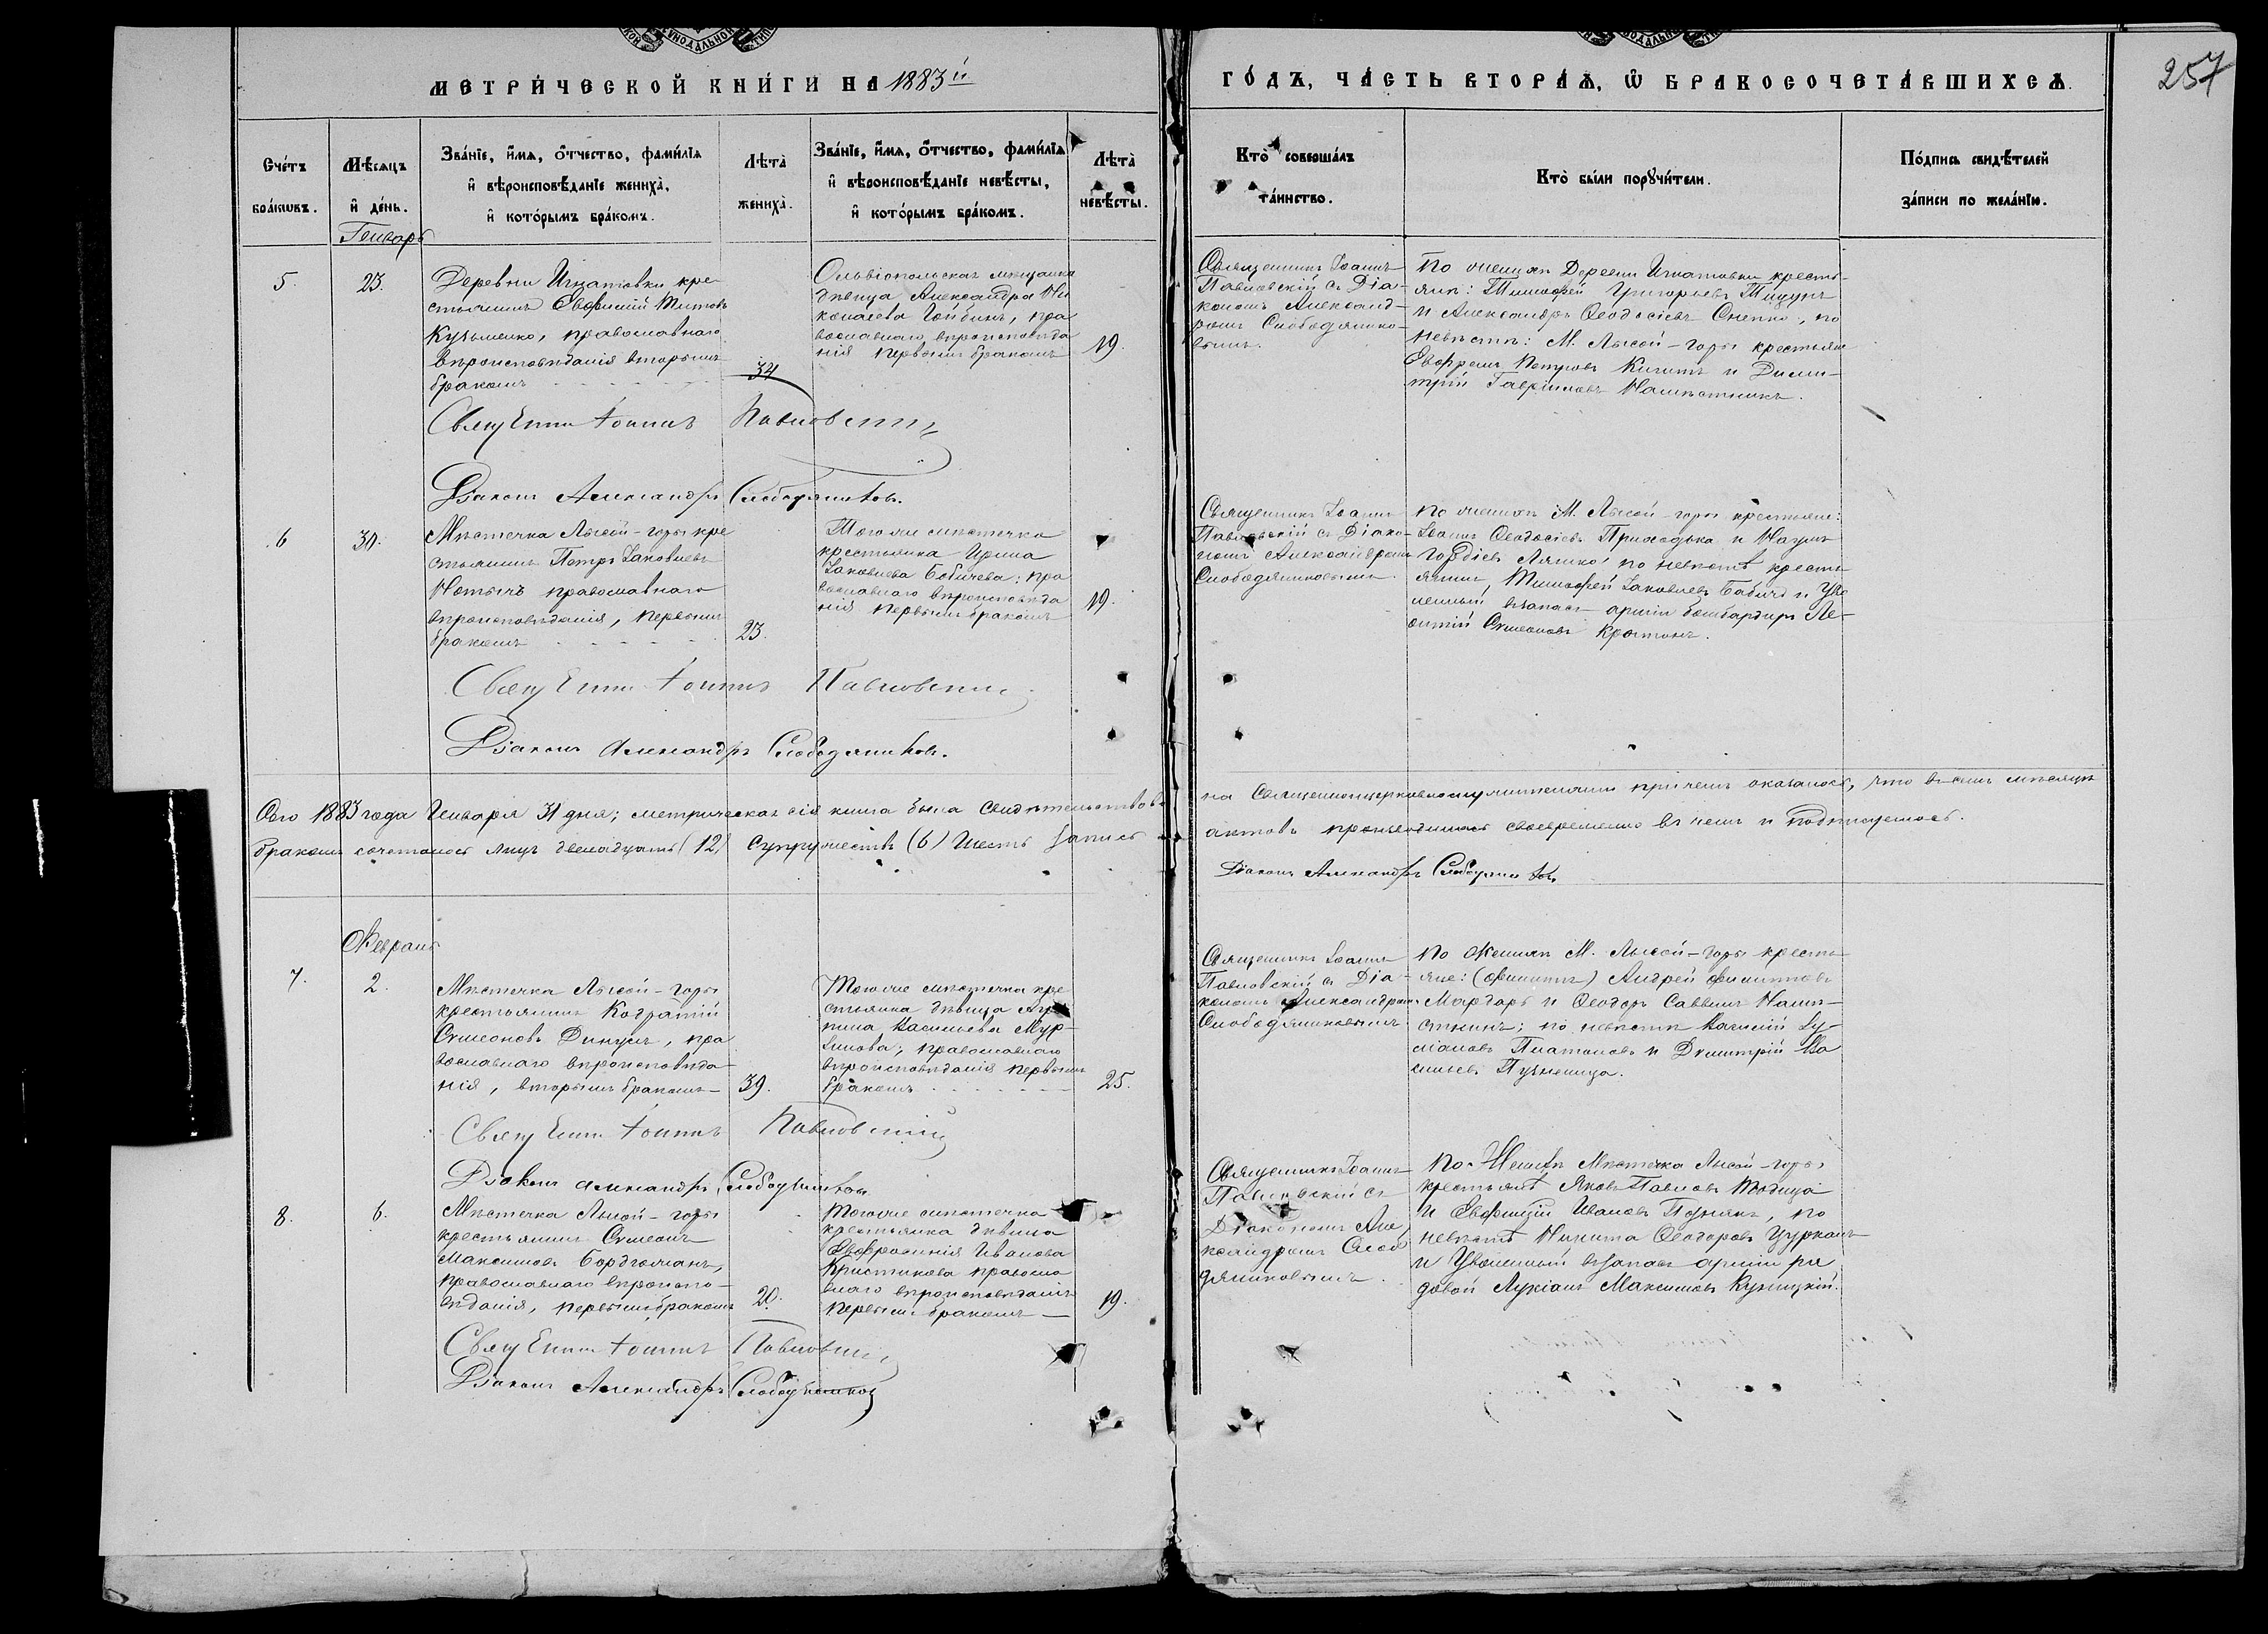 МЕТРИЧЕСКОЙ КНИГИ НА 1883й
ГОДЪ, ЧАСТЬ ВТОРАЯ, Ѡ БРАКОСОЧЕТАВШИХСЯ.
257
Счетъ браковъ.
Мѣсяцъ и день.
Званіе, имя, отчество, фамилія и вѣроисповѣданіе жениха, и которымъ бракомъ.
Лѣта жениха.
Званіе, имя, отчество, фамилія и вѣроисповѣданіе невѣсты, и которымъ бракомъ.
Лѣта невѣсты.
Кто совершалъ таинство.
Кто были поручители.
Подпись свидѣтелей записи по желанію.
Генварь
5.
23.
Деревни Игнатовки кре
стьянинъ Евфимій Титовъ
Кузьменко, православнаго
вѣроисповѣданія вторымъ
бракомъ
34
Ольвіопольская мѣщанка
дѣвица Александра Ни
колаева, пра
вославнаго вѣроисповѣда
нія первымъ бракомъ
19.
Священникъ Іоаннъ
Павловскій съ Діа-
кономъ Александ-
ромъ Слободянико-
вымъ.
По женихѣ Деревни Игнатовки кресть-
яне: Тимофей Григорьевъ
и Александръ Ѳеодосіевъ, по
невѣстѣ: М. Лысой-горы крестьяне
Евфремъ Петровъ и Дими-
трій Гавріиловъ Намѣстникъ.
Священникъ Іоаннъ Павловскій
Діаконъ Александръ Слободяниковъ.
6
30.
Мѣстечка Лысой-горы кре
стьянинъ Петръ Іаковлевъ
православнаго
вѣроисповѣданія, первымъ
бракомъ
23.
Тогоже мѣстечка
крестьянка Ирина
Іаковлева Бабичева; пра
вославнаго вѣроисповѣда
нія первымъ бракомъ
19.
Священникъ Іоаннъ
Павловскій съ Діако-
номъ Александромъ
Слободяниковымъ.
По женихѣ М. Лысой-горы крестьяне:
Іоаннъ Ѳеодосіевъ Приходько и Наумъ
Гордіевъ Ляшко, по невѣстѣ кресть
янинъ, Тимофей Іаковлевъ Бабичъ и Уво
ленный въ запасъ арміи бомбардиръ Ле-
онтій Симеоновъ.
Священникъ Іоаннъ Павловскій
Діаконъ Александръ Слободяниковъ.
Сего 1883 года Генваря 31 дня; метрическая сія книга была свидѣтельствова
на Священноцерковнослужителями причемъ оказалось, что въ семъ мѣсяцѣ
бракомъ сочеталось лицъ двенадцать (12) супружествъ (6) шесть запись
актовъ производилась своевременно въ чемъ и подписуемось.
Діаконъ Александръ Слободяниковъ
Февраль
7.
2.
Мѣстечка Лысой-горы
крестьянинъ Кодратій
Симеоновъ, пра
вославнаго вѣроисповѣда
нія, вторымъ бракомъ
39.
Тогоже мѣстечка кре
стьянка дѣвица
Васильева Мур-
зинова; православнаго
вѣроисповѣданія первымъ
бракомъ
25.
Священникъ Іоаннъ
Павловскій съ Діа-
кономъ Александромъ
Слободяниковымъ
По женихѣ М. Лысой-горы кресть
яне: Андрей Филипповъ
Мардарь и Ѳеодоръ Саввинъ Намѣ-
стникъ; по невѣстѣ Василій
Платоновъ и Димитрій Ва
сильевъ.
Священникъ Іоаннъ Павловскій
Діаконъ Александръ Слободяниковъ
8.
6.
Мѣстечка Лысой-горы
крестьянинъ Симеонъ
Максимовъ Бордюжанъ,
православнаго вѣроиспо-
вѣданія, первымъ бракомъ
20.
Тогоже мѣстечка
крестьянка дѣвица
Евфросинія Иванова
православ
наго вѣроисповѣданія
первымъ бракомъ
19.
Священникъ Іоаннъ
Павловскій съ
Діакономъ Але
ксандромъ Слобо
дяниковымъ.
По женихѣ Мѣстечка Лысой-горы
крестьяне Яковъ Павловъ
и Евфимій Ивановъ Познякъ, по
невѣстѣ Никита Ѳеодоровъ Цурканъ
и Уволенный въ запасъ арміи ря
довой Лукіанъ Максимовъ.
Священникъ Іоаннъ Павловскій
Діаконъ Александръ Слободяниковъ